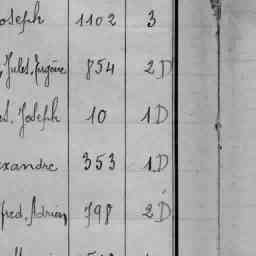 oseph 1102 3
, Jules, Eugène 854 2 D
s. Joseph 10 1 D
exandre 353 1 D
fred, Adrien 798 2 D